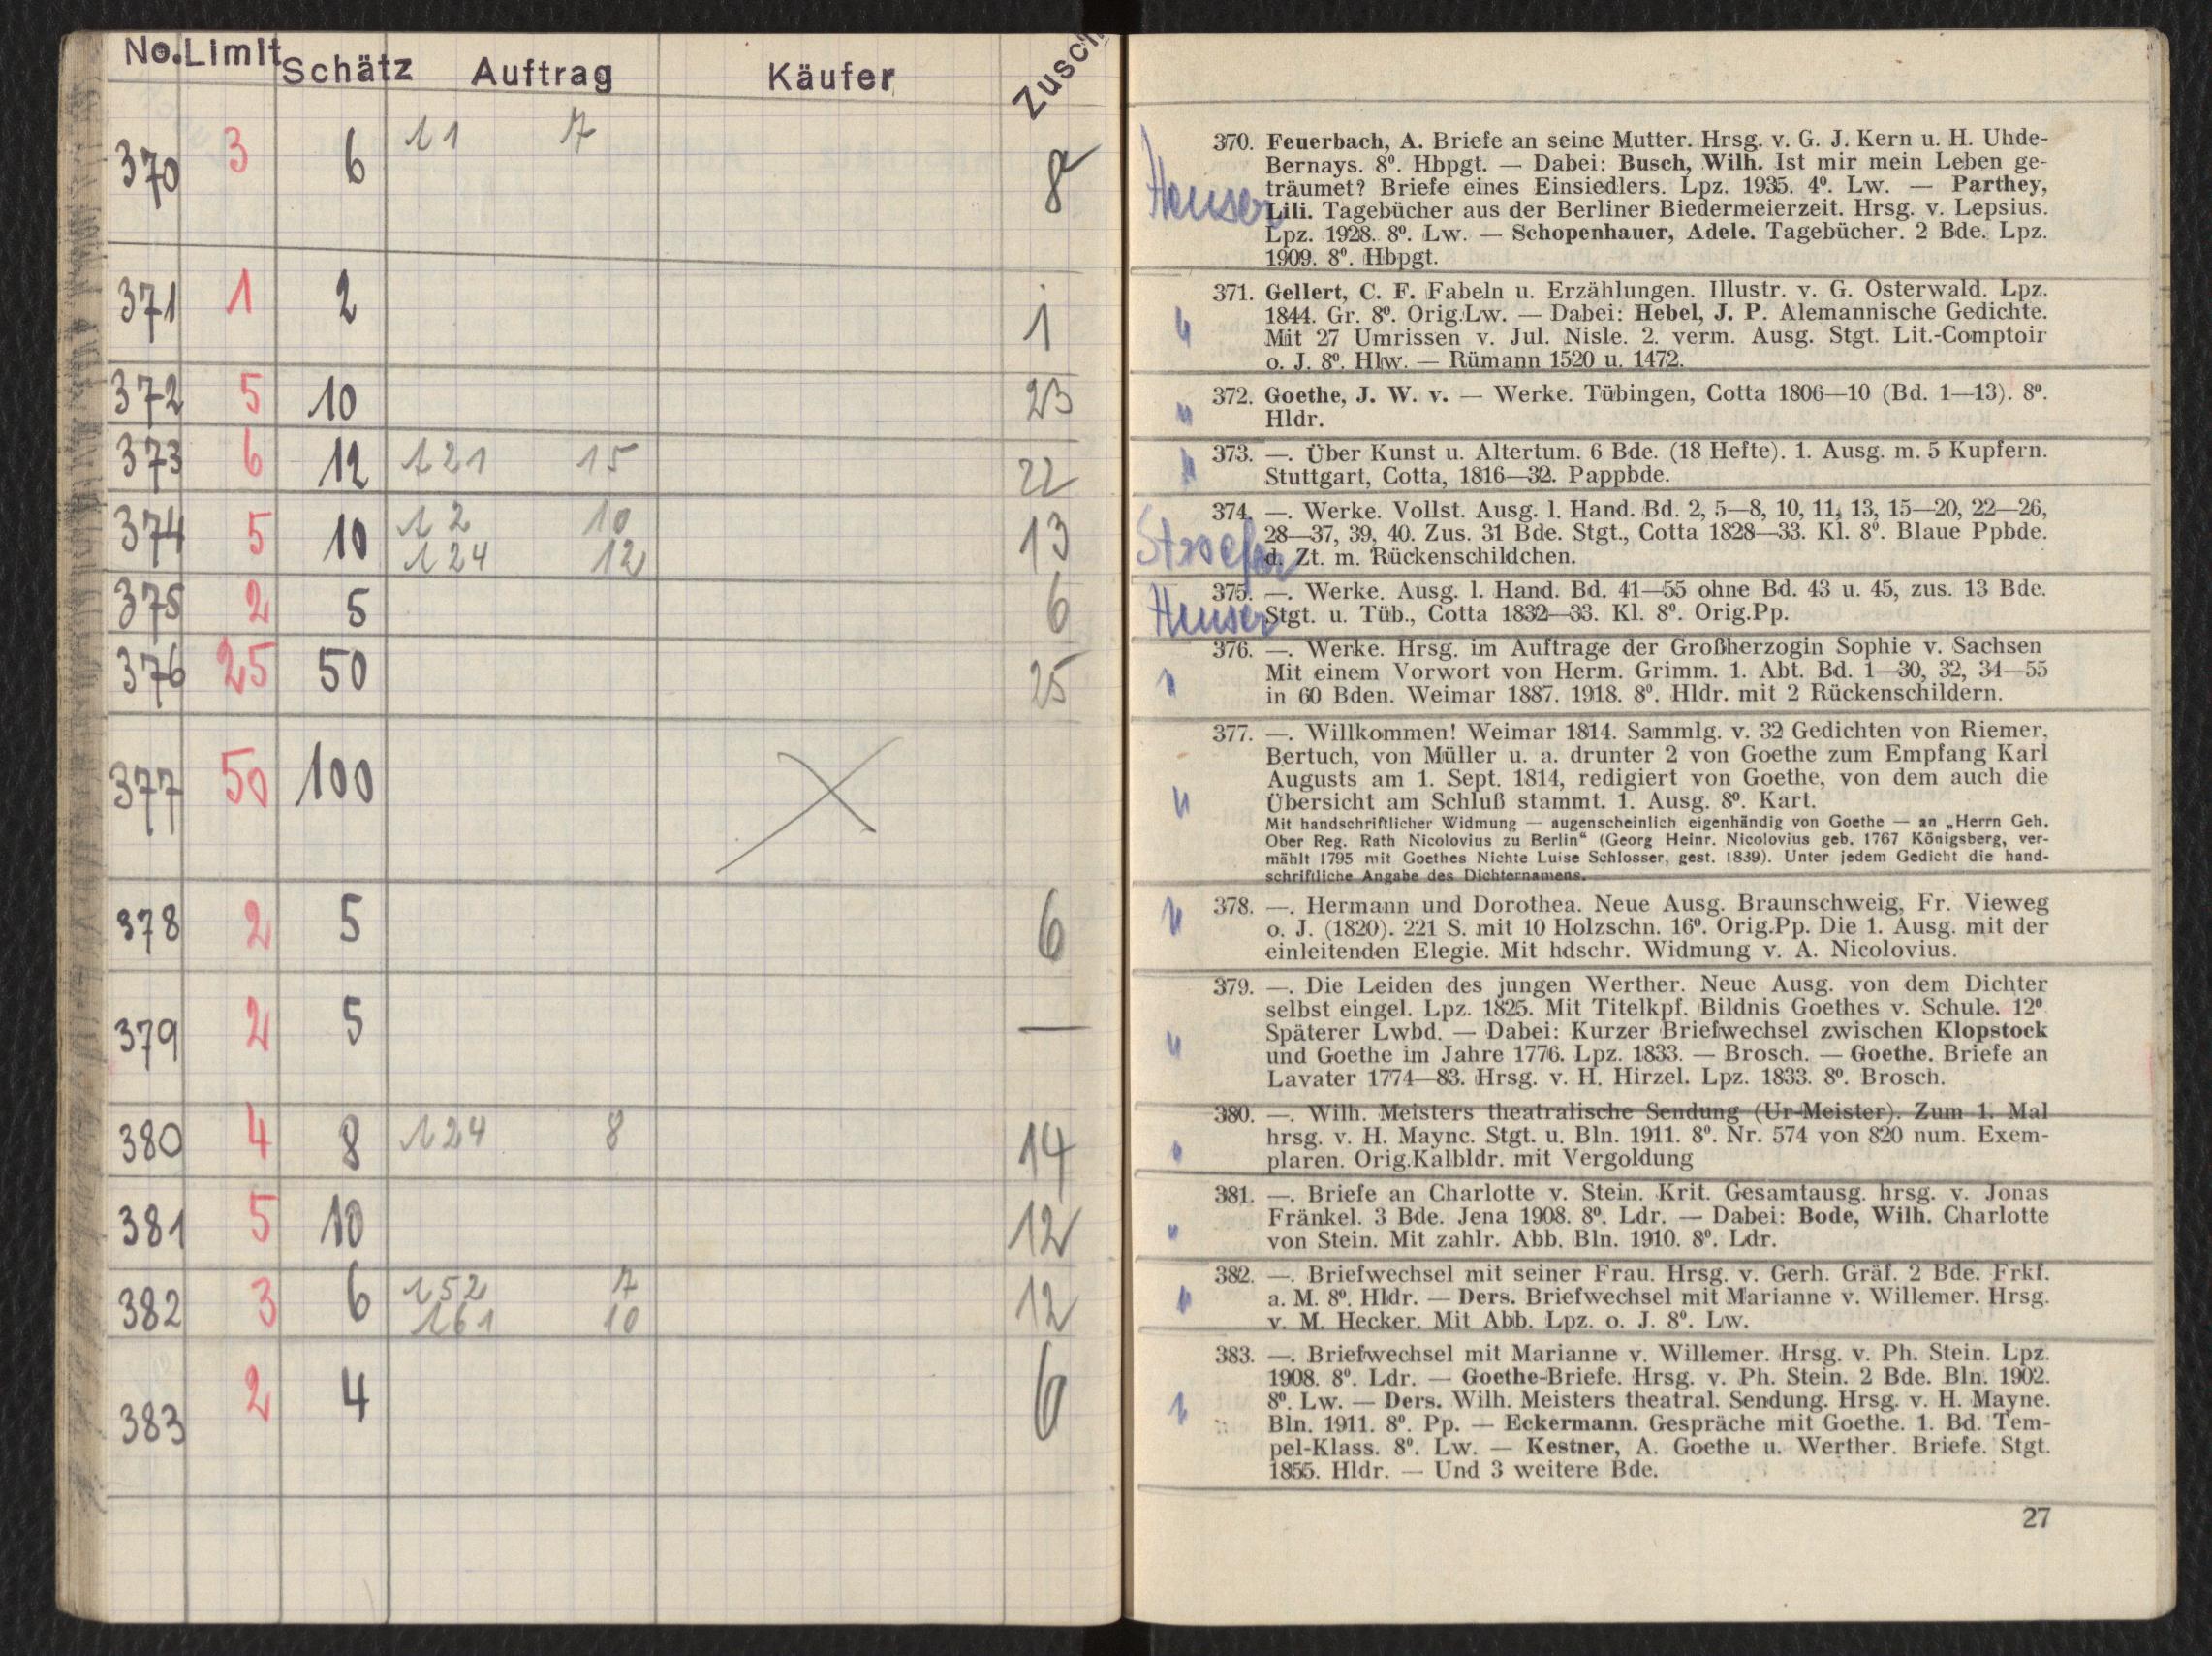 No. Limit Schätz Auftrag Käufer Zusch
370 3 6 11 7 8
371 1 2 1
372 5 10 23
373 6 12 121 15 22
374 5 10 12 10 13
124 12
375 2 5 6
376 25 50 25
377 50 100
378 2 5 6
379 2 5 —
380 4 8 124 8 14
381 5 10 12
382 3 6 152 7 12
161 10
383 2 4 6
370. Feuerbach, A. Briefe an seine Mutter. Hrsg. v. G. J. Kern u. H. Uhde-
Bernays. 8º. Hbpgt. — Dabei: Busch, Wilh. Ist mir mein Leben ge-
Heuser träumet? Briefe eines Einsiedlers. Lpz. 1935. 4º. Lw. — Parthey,
Lili. Tagebücher aus der Berliner Biedermeierzeit. Hrsg. v. Lepsius.
Lpz. 1928. 8º. Lw. — Schopenhauer, Adele. Tagebücher. 2 Bde. Lpz.
1909. 8º. Hbpgt.
371. Gellert, C. F. Fabeln u. Erzählungen. Illustr. v. G. Osterwald. Lpz.
1844. Gr. 8º. Orig.Lw. — Dabei: Hebel, J. P. Alemannische Gedichte.
" Mit 27 Umrissen v. Jul. Nisle. 2. verm. Ausg. Stgt. Lit.-Comptoir
o. J. 8º. Hlw. — Rümann 1520 u. 1472.
372. Goethe, J. W. v. — Werke. Tübingen, Cotta 1806—10 (Bd. 1—13). 8º.
" Hldr.
" 373. —. Über Kunst u. Altertum. 6 Bde. (18 Hefte). 1. Ausg. m. 5 Kupfern.
Stuttgart, Cotta, 1816—32. Pappbde.
374. —. Werke. Vollst. Ausg. l. Hand. Bd. 2, 5—8, 10, 11, 13, 15—20, 22—26,
28—37, 39, 40. Zus. 31 Bde. Stgt., Cotta 1828—33. Kl. 8º. Blaue Ppbde.
d. Zt. m. Rückenschildchen.
375. —. Werke. Ausg. l. Hand. Bd. 41—55 ohne Bd. 43 u. 45, zus. 13 Bde.
Heuser Stgt. u. Tüb., Cotta 1832—33. Kl. 8º. Orig.Pp.
376. —. Werke. Hrsg. im Auftrage der Großherzogin Sophie v. Sachsen
" Mit einem Vorwort von Herm. Grimm. 1. Abt. Bd. 1—30, 32, 34—55
in 60 Bden. Weimar 1887. 1918. 8º. Hldr. mit 2 Rückenschildern.
377. —. Willkommen! Weimar 1814. Sammlg. v. 32 Gedichten von Riemer,
Bertuch, von Müller u. a. drunter 2 von Goethe zum Empfang Karl
Augusts am 1. Sept. 1814, redigiert von Goethe, von dem auch die
" Übersicht am Schluß stammt. 1. Ausg. 8º. Kart.
Mit handschriftlicher Widmung — augenscheinlich eigenhändig von Goethe — an „Herrn Geh.
Ober Reg. Rath Nicolovius zu Berlin“ (Georg Heinr. Nicolovius geb. 1767 Königsberg, ver-
mählt 1795 mit Goethes Nichte Luise Schlosser, gest. 1839). Unter jedem Gedicht die hand-
schriftliche Angabe des Dichternamens.
" 378. —. Hermann und Dorothea. Neue Ausg. Braunschweig, Fr. Vieweg
o. J. (1820). 221 S. mit 10 Holzschn. 16º. Orig.Pp. Die 1. Ausg. mit der
einleitenden Elegie. Mit hdschr. Widmung v. A. Nicolovius.
379. —. Die Leiden des jungen Werther. Neue Ausg. von dem Dichter
selbst eingel. Lpz. 1825. Mit Titelkpf. Bildnis Goethes v. Schule. 12º
Späterer Lwbd. — Dabei: Kurzer Briefwechsel zwischen Klopstock
" und Goethe im Jahre 1776. Lpz. 1833. — Brosch. — Goethe. Briefe an
Lavater 1774—83. Hrsg. v. H. Hirzel. Lpz. 1833. 8º. Brosch.
380. —. Wilh. Meisters theatralische Sendung (Ur-Meister). Zum 1. Mal
hrsg. v. H. Maync. Stgt. u. Bln. 1911. 8º. Nr. 574 von 820 num. Exem-
" plaren. Orig.Kalbldr. mit Vergoldung
381. —. Briefe an Charlotte v. Stein. Krit. Gesamtausg. hrsg. v. Jonas
Fränkel. 3 Bde. Jena 1908. 8º. Ldr. — Dabei: Bode, Wilh. Charlotte
" von Stein. Mit zahlr. Abb. Bln. 1910. 8º. Ldr.
382. —. Briefwechsel mit seiner Frau. Hrsg. v. Gerh. Gräf. 2 Bde. Frkf.
" a. M. 8º. Hldr. — Ders. Briefwechsel mit Marianne v. Willemer. Hrsg.
v. M. Hecker. Mit Abb. Lpz. o. J. 8º. Lw.
383. —. Briefwechsel mit Marianne v. Willemer. Hrsg. v. Ph. Stein. Lpz.
1908. 8º. Ldr. — Goethe-Briefe. Hrsg. v. Ph. Stein. 2 Bde. Bln. 1902.
" 8º. Lw. — Ders. Wilh. Meisters theatral. Sendung. Hrsg. v. H. Mayne.
Bln. 1911. 8º. Pp. — Eckermann. Gespräche mit Goethe. 1. Bd. Tem-
pel-Klass. 8º. Lw. — Kestner, A. Goethe u. Werther. Briefe. Stgt.
1855. Hldr. — Und 3 weitere Bde.
27